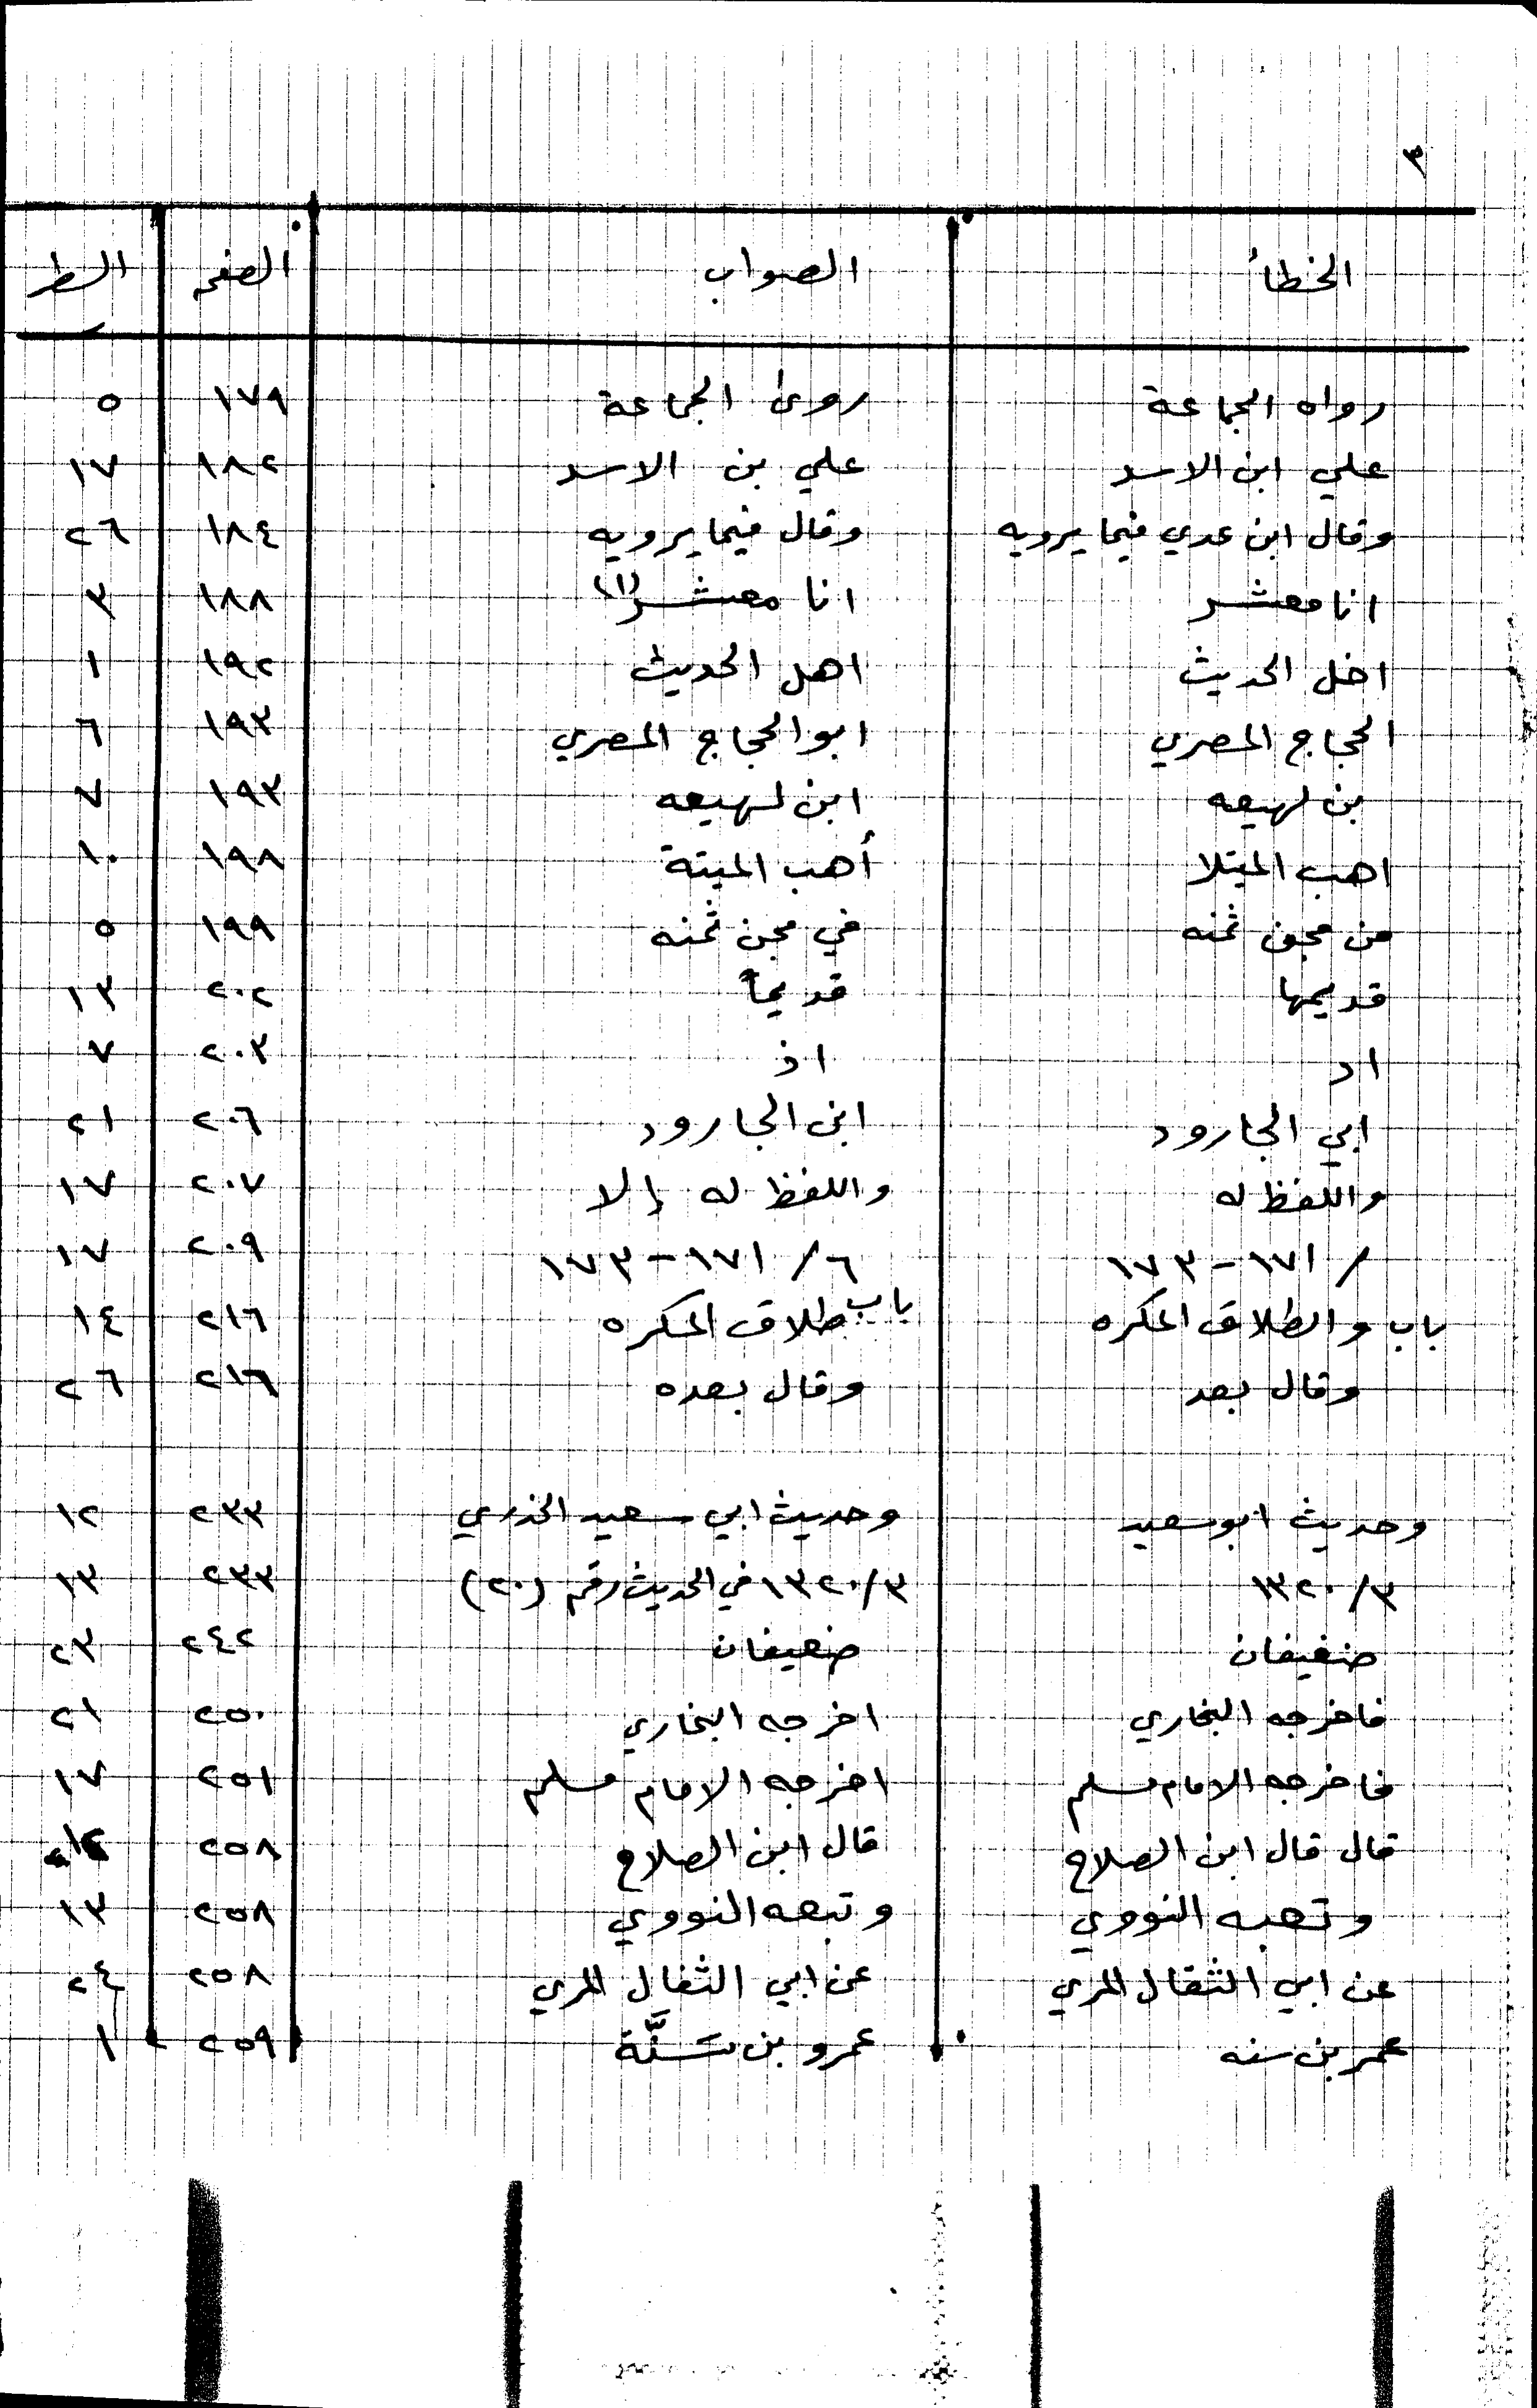 ٣
الخطأ الصواب الصفحه السطر
رواه الجماعة روى الجماعة ١٧٩ ٥
علي ابن الاسد علي بن الاسد ١٨٢ ١٧
وقال ابن عدي فيما يرويه وقال فيما يرويه ١٨٤ ٢٦
انا معشر انا معشر(١) ١٨٨ ٣
اخل الحديث اهل الحديث ١٩٢ ١
الحجاج المصري ابو الحجاج المصري ١٩٣ ٦
بن لهيعه ابن لهيعه ١٩٣ ٧
اهب الميتلا أهب الميتة ١٩٨ ١٠
من مجن ثمنه في مجن ثمنه ١٩٩ ٥
قديمها قديماً ٢٠٢ ١٣
اد اذ ٢٠٣ ٧
ابي الجارود ابن الجارود ٢٠٦ ٢١
واللفظ له واللفظ له إلا ٢٠٧ ١٧
/ ١٧١ - ١٧٣ ٦/ ١٧١ - ١٧٣ ٢٠٩ ١٧
باب والطلاق المكره باب طلاق المكره ٢١٦ ١٤
وقال بعد وقال بعده ٢١٦ ٢٦
وحديث ابو سعيد وحديث ابي سعيد الخدري ٢٣٣ ١٢
٣/ ١٣٢٠ ٣/ ١٣٢٠ في الحديث رقم (٢٠) ٢٣٣ ١٣
ضغيفان ضعيفان ٢٤٢ ٢٣
فاخرجه البخاري اخرجه البخاري ٢٥٠ ٢١
فاخرجه الامام مسلم اخرجه الامام مسلم ٢٥١ ١٧
قال قال ابن الصلاح قال ابن الصلاح ٢٥٨
وتعبه النووي وتبعه النووي ٢٥٨ ١٣
عن ابي الثقال المري عن ابي الثفال المري ٢٥٨ ٢٤
عمر بن سنه عمرو بن سَنَّة ٢٥٩ ١